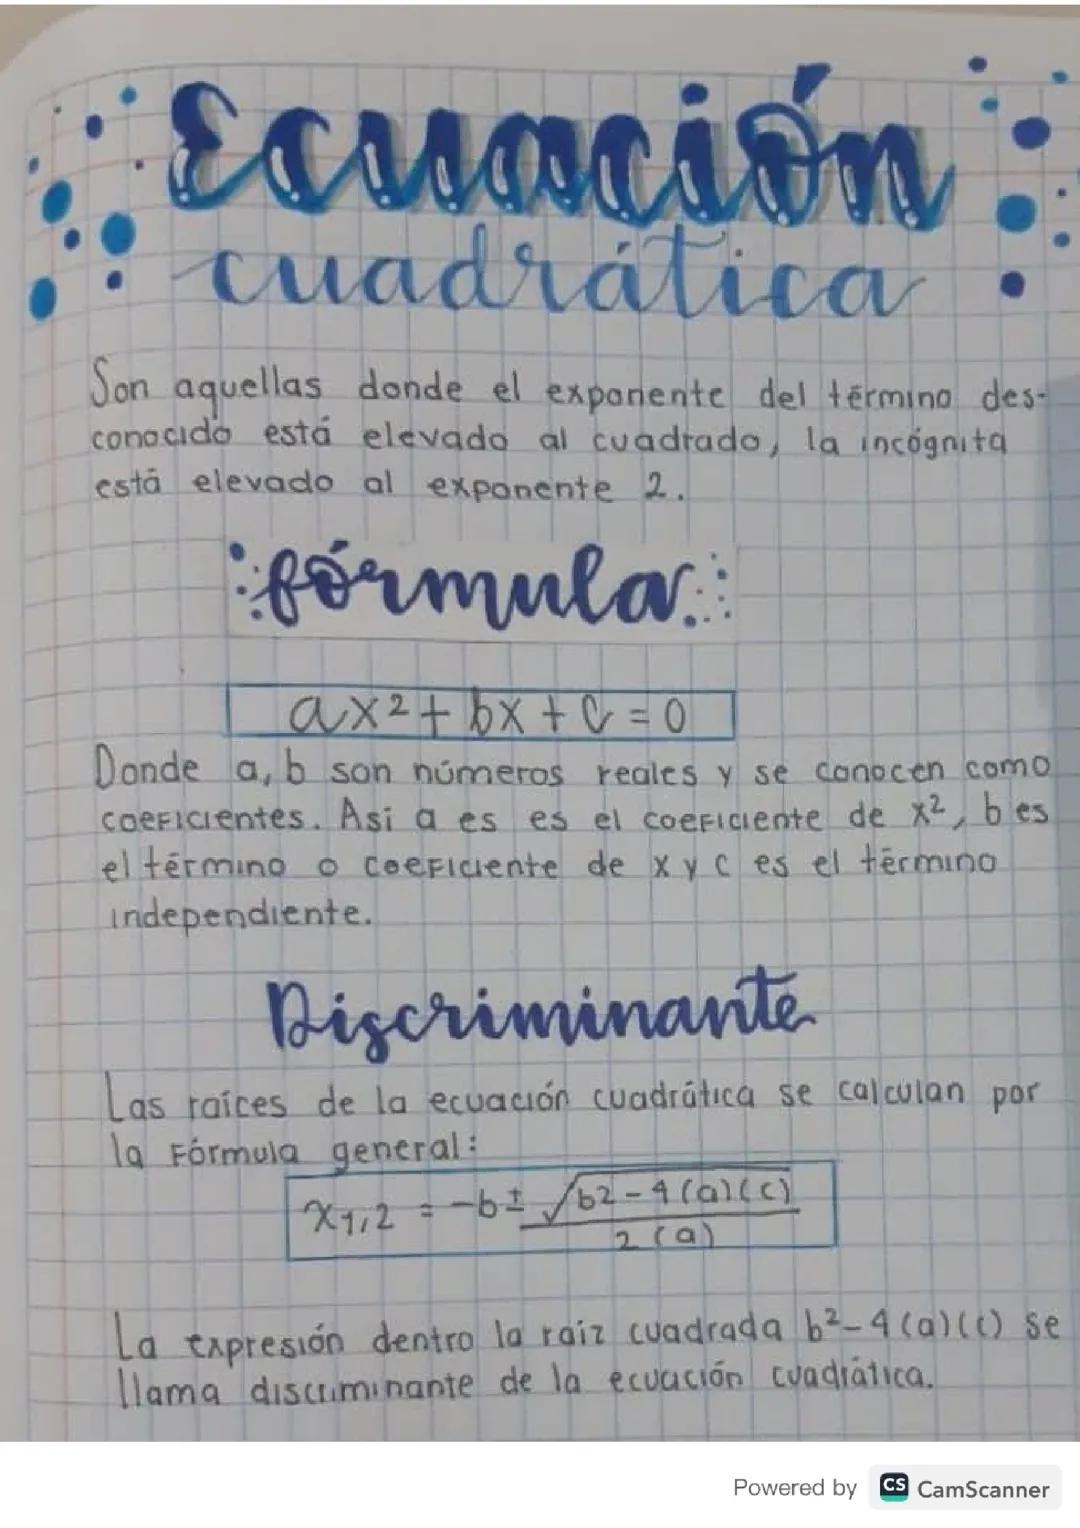 Ecuación
cuadrática
Son aquellas donde el exponente del término des-
conocido está elevado al cuadrado, la incógnita
está elevado al exponente 2.
fórmula
ax² + bx + c = 0
Donde a, b son números reales y se conocen como
coeficientes. Asi a es es el coeficiente de x², b es
el término o coeficiente de x y c es el término
independiente.
Discriminante
Las raíces de la ecuación cuadrática se calculan por
la Fórmula general:
x1,2 = -b ± √b2 - 4(a)(c)
2(a)
La expresión dentro la raiz cuadrada b² - 4(a)(c) se
llama discriminante de la ecuación cuadrática.
Powered by CS CamScanner